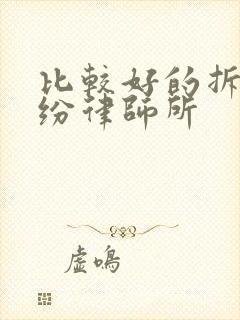 比較好的拆
紛律師所
虛鳴